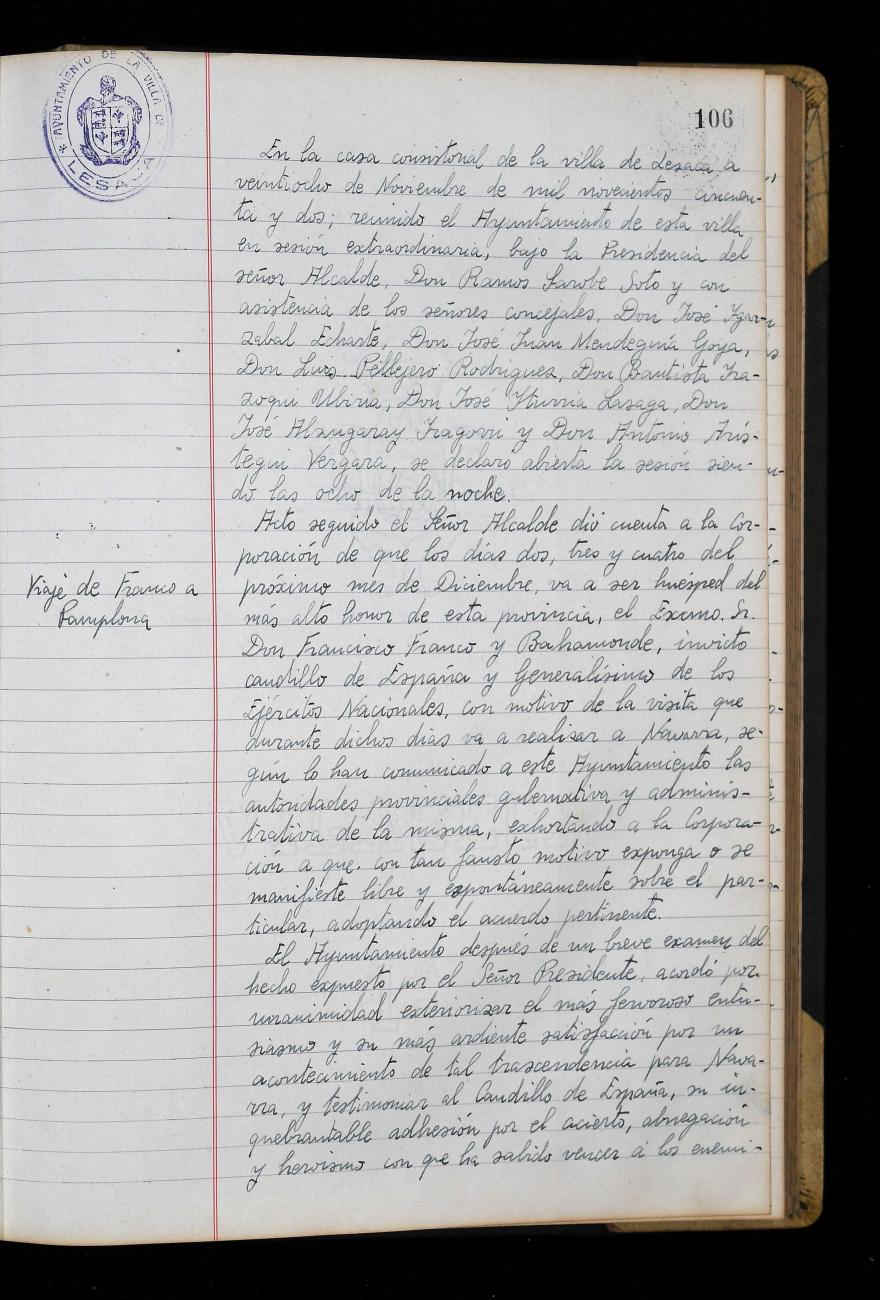 * AYUNTAMIENTO DE LA VILLA DE
LESACA
106
En la casa consistorial de la villa de Lesaca a
veintiocho de Noviembre de mil novecientos cincuen-
ta y dos; reunido el Ayuntamiento de esta villa
en sesión extraordinaria, bajo la Presidencia del
señor Alcalde, Don Ramos Sarobe Soto y con
asistencia de los señores concejales, Don José Ygar-
zabal Echarte, Don José Juan Mendeguia Goya,
Don Luis Pellejero Rodriguez, Don Bautista Ira-
zoqui Ubiria, Don José Yturria Lasaga, Don
José Alzugaray Iragorri y Don Antonio Aris-
tegui Vergara, se declaro abierta la sesión sien-
do las ocho de la noche.
Acto seguido el Señor Alcalde dió cuenta a la Cor-
poración de que los días dos, tres y cuatro del
Viaje de Franco a
Pamplona
próximo mes de Diciembre, va a ser huésped del
más alto honor de esta provincia, el Excmo. Sr.
Don Francisco Franco y Bahamonde, invicto
caudillo de España y Generalísimo de los
Ejércitos Nacionales, con motivo de la visita que
durante dichos dias va a realizar a Navarra, se-
gún lo han comunicado a este Ayuntamiento las
autoridades provinciales gubernativa y adminis-
trativa de la misma, exhortando a la Corpora-
ción a que. con tan fausto motivo exponga o se
manifieste libre y expontáneamente sobre el par-
ticular, adoptando el acuerdo pertinente.
El Ayuntamiento después de un breve examen del
hecho expuesto por el Señor Presidente, acordó por
unanimidad exteriorizar el más fervoroso entu-
siasmo y su más ardiente satisfacción por un
acontecimiento de tal trascendencia para Nava-
rra, y testimoniar al Caudillo de España, su in-
quebrantable adhesión por el acierto, abnegación
y heroismo con que ha salido vencer a los enemi-